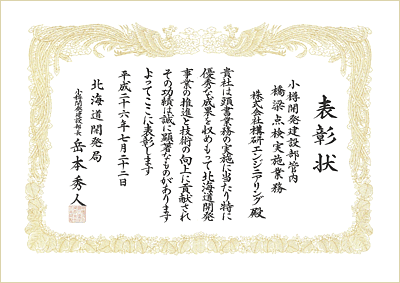 表彰状
小樽開発建設部管内
橋梁点検実施業務
株式会社構研エンジニアリング殿
貴社は頭書業務の実施に当たり特に
優秀な成果を収めもって北海道開発
事業の推進と技術の向上に貢献され
その功績は誠に顕著なものがあります
よってここに表彰します
平成二十六年七月二十二日
北海道開発局
小樽開発建設部長 岳本秀人